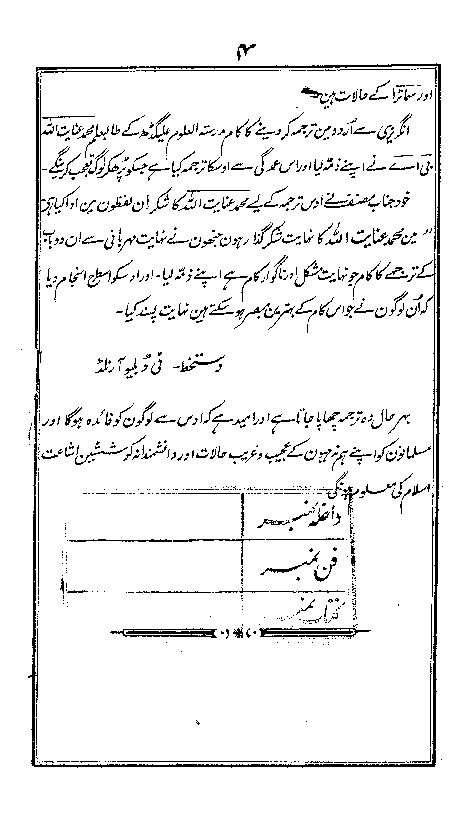 ۴
اور سماٹرا کے حالات ہین۔
انگریزی سے اُردو مین ترجمہ کر دینے کا کام مدرستہ العلوم علیگڑھ کے طالبعلم محمد عنایت اللہ
بی اے نے اپنے ذمہ لیا اور اس عمدگی سے اوسکا ترجمہ کیا ہے جسکو پڑھکر لوگ تعجب کرینگے۔
خود جناب مصنف نے اوس ترجمہ کے لیے محمد عنایت اللہ کا شکر ان لفظون مین ادا کیا ہی
"مین محمد عنایت اللہ کا نہایت شکر گذار ہون جنھون نے نہایت مہربانی سے ان دو باب
کے ترجمے کا کام جو نہایت مشکل اور ناگوار کام ہے اپنے ذمہ لیا۔ اور اوسکو اسطرح انجام دیا
کہ اُن لوگون نے جو اس کام کے بہترین مبصر ہو سکتے ہین نہایت پسند کیا۔
دستخط۔ ٹی ڈبلیو آرنلڈ
بہر حال وہ ترجمہ چھاپا جاتا ہے اور امید ہے کہ اوس سے لوگون کو فائدہ ہوگا اور
مسلمانون کو اپنے ہم مذہبون کے عجیب و غریب حالات اور دانشمندانہ کوششین اشاعت
اسلام کی معلوم ہونگی
داخلہ نمبر
فن نمبر
کتاب نمبر